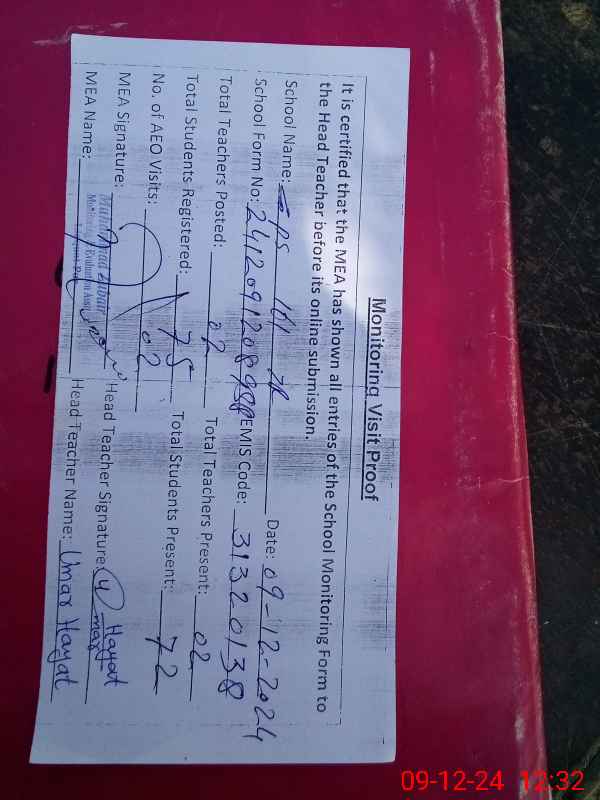 Monitoring Visit Proof
It is certified that the MEA has shown all entries of the School Monitoring Form to
the Head Teacher before its online submission.
School Name: GPS 141 Date: 09-12-2024
School Form No: EMIS Code: 31320138
Total Teachers Posted: 02 Total Teachers Present: 02
Total Students Registered: 75 Total Students Present: 72
No. of AEO Visits: 02
MEA Signature: Head Teacher Signature: Umar Hayat
MEA Name: Head Teacher Name: Umar Hayat
Muhammad Zubair
Monitoring & Evaluation Assis
09-12-24 12:32